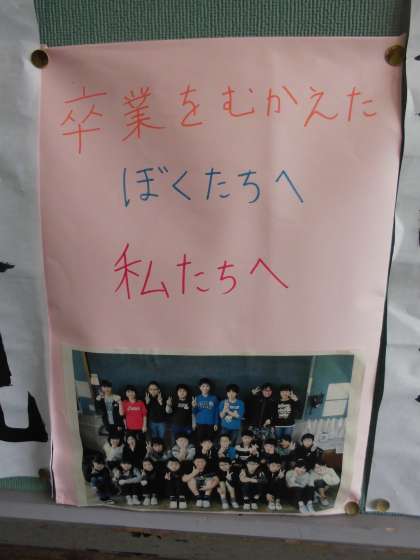 卒業をむかえた
ぼくたちへ
私たちへ